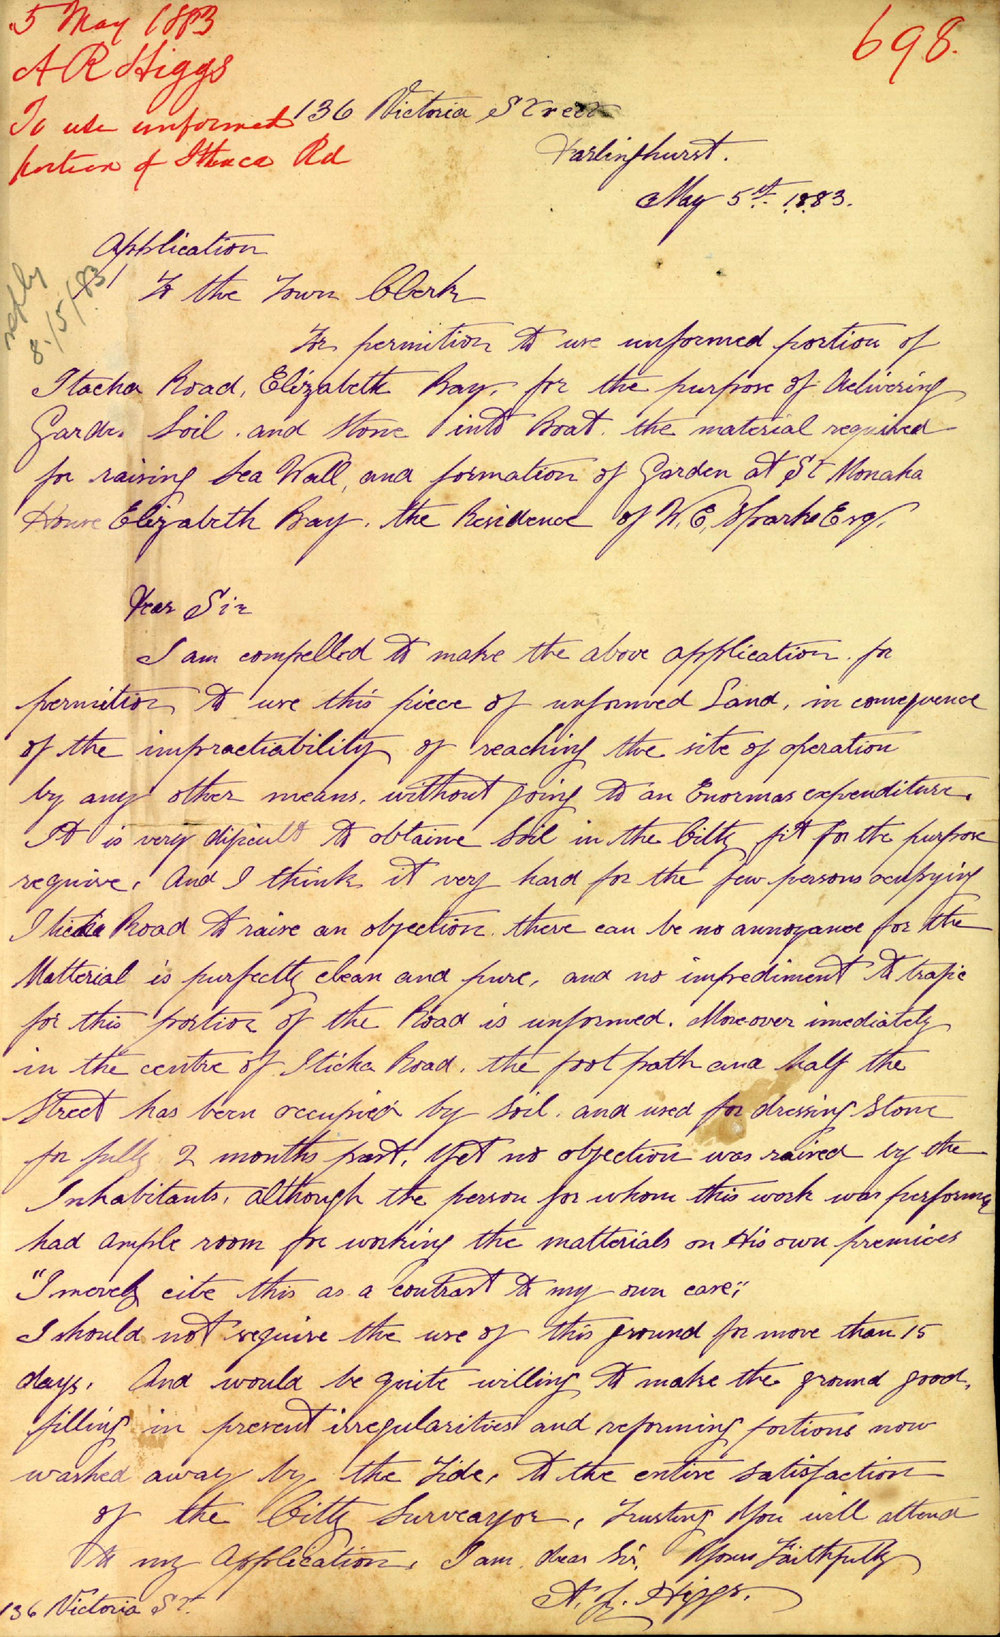 5 May 1883
A R Higgs
To use unformed
portion of Ithaca Rd
698.
136 Victoria Street
Darlinghurst.
May 5st. 1883.
reply
8/5/83
Application
To the Town Clerk
For permition to use unformed portion of
Itacha Road, Elizabeth Bay, for the purpose of delivering
Garden Soil and Stone into Boat. the material required
for raising Sea Wall, and formation of Garden at St Monaha
House Elizabeth Bay. the Residence of W. E. Sparke Esq.
Dear Sir
I am compelled to make the above application for
permition to use this piece of unformed Land, in consequence
of the impractiability of reaching the site of operation
by any other means, without going to an Enormas expenditure.
It is very dificult to obtaine Soil in the Citty fit for the purpose
require, And I think it very hard for the few persons ocupying
Road to raise an objection. there can be no annoyance for the
Matterial is purfectly clean and pure, and no imprediment to trafic
for this portion of the Road is unformed. Moreover imediately
in the centre of Iticka Road, the foot path and half the
Street has been occupied by Soil, and used for dressing Stone
for fully 2 months past, Yet no objection was raised by the
Inhabitants, although the person for whom this work was performing
had ample room for working the matterials on His own premices
"I merely cite this as a contrast to my own case;"
I should not require the use of this ground for more than 15
days. And would be quite willing to make the ground good,
filling in present irregularities and reforming portions now
washed away by the Tide, to the entire satisfaction
of the Citty Surveayor, Trusting You will attend
to my Application, I am dear Sir, Yours Faithfully
A. L. Higgs.
136 Victoria St.